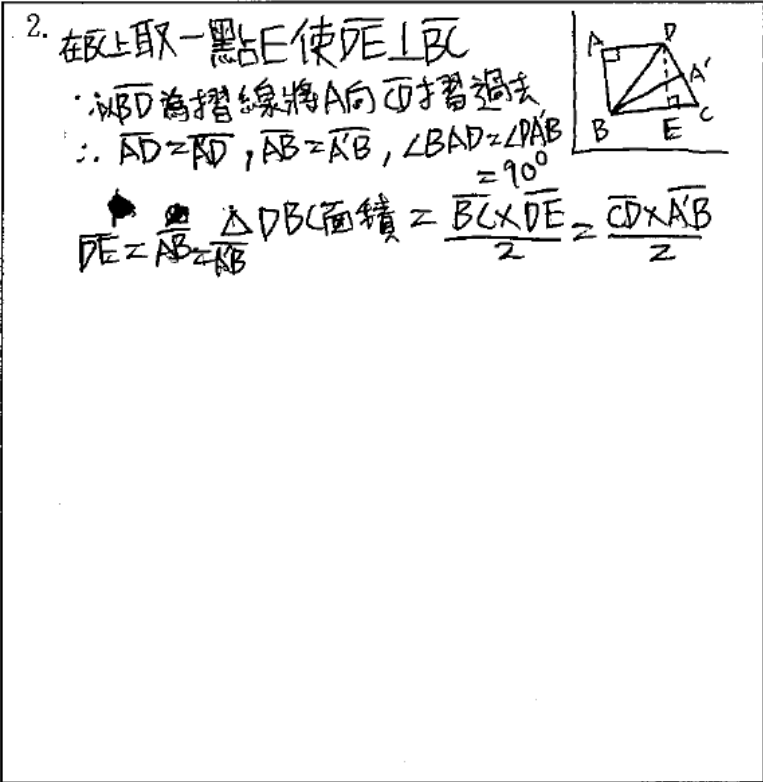 2. 在BC上取一點E使DE⊥BC
∵以BD為摺線將A向CD摺過去
∴ AD=A'D, AB=A'B, ∠BAD=∠DA'B
=90°
DE=AB=A'B
△DBC面積 = BC×DE/2 = CD×A'B/2
A D A' B E C